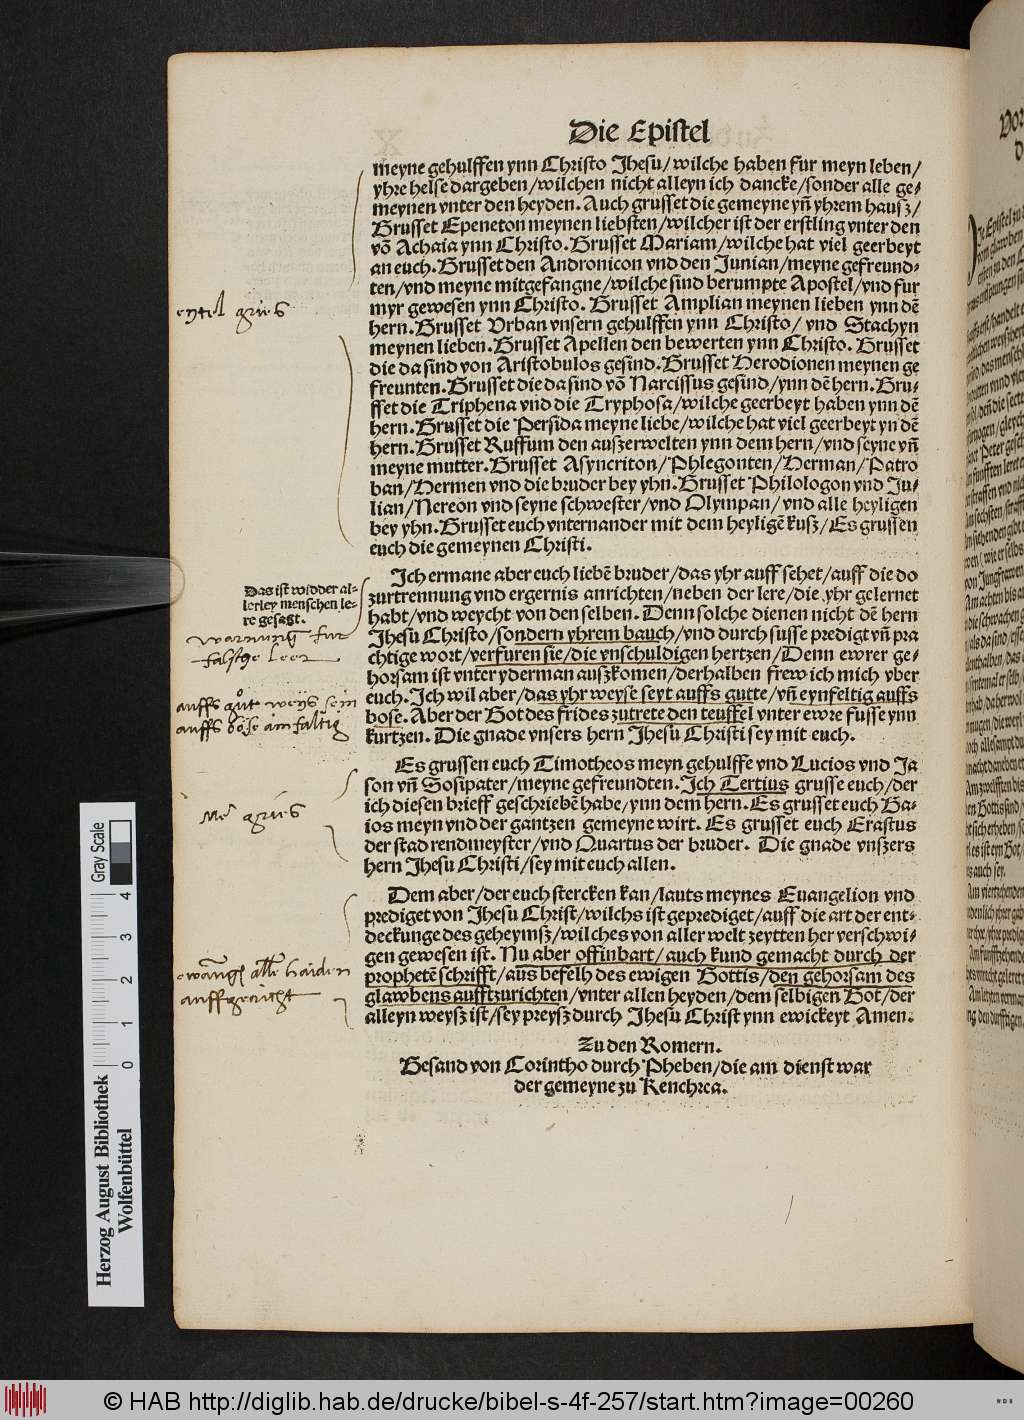 Die Epistel
meyne gehulffen ynn Christo Jhesu/wilche haben fur meyn leben/
yhre helse dargeben/wilchen nicht alleyn ich dancke/sonder alle ge-
meynen vnter den heyden. Auch grusset die gemeyne yñ yhrem hausz/
Grusset Epeneton meynen liebsten/wilcher ist der erstling vnter den
võ Achaia ynn Christo. Grusset Mariam/wilche hat viel geerbeyt
an euch. Grusset den Andronicon vnd den Junian/meyne gefreund-
ten/vnd meyne mitgefangne/wilche sind berumpte Apostel/vnd fur
myr gewesen ynn Christo. Grusset Amplian meynen lieben ynn dē
hern. Grusset Vrban vnsern gehulffen ynn Christo/vnd Stachyn
meynen lieben. Grusset Apellen den bewerten ynn Christo. Grusset
die da sind von Aristobulos gesind. Grusset Herodionen meynen ge
freunten. Grusset die da sind võ Narcissus gesind/ynn dē hern. Gru-
sset die Triphena vnd die Tryphosa/wilche geerbeyt haben ynn dē
hern. Grusset die Persida meyne liebe/wilche hat viel geerbeyt yn dē
hern. Grusset Ruffum den auszerwelten ynn dem hern/vnd seyne vñ
meyne mutter. Grusset Asyncriton/Phlegonten/Herman/Patro
ban/Hermen vnd die bruder bey yhn. Grusset Philologon vnd Ju-
lian/Nereon vnd seyne schwester/vnd Olympan/vnd alle heyligen
bey yhn. Grusset euch vnternander mit dem heyligē kusz/Es grussen
euch die gemeynen Christi.
Ich ermane aber euch liebē bruder/das yhr auff sehet/auff die do
zurtrennung vnd ergernis anrichten/neben der lere/die yhr gelernet
habt/vnd weycht von den selben. Denn solche dienen nicht dē hern
Jhesu Christo/sondern yhrem bauch/vnd durch susse predigt vñ pra
chtige wort/verfuren sie/die vnschuldigen hertzen/Denn ewrer ge-
horsam ist vnter yderman auszkomen/derhalben frew ich mich vber
euch. Ich wil aber/das yhr weyse seyt auffs gutte/vñ eynfeltig auffs
bose. Aber der Got des frides zutrete den teuffel vnter ewre fusse ynn
kurtzen. Die gnade vnsers hern Jhesu Christi sey mit euch.
Es grussen euch Timotheos meyn gehulffe vnd Lucios vnd Ja
son vñ Sosipater/meyne gefreundten. Ich Tertius grusse euch/der
ich diesen brieff geschriebē habe/ynn dem hern. Es grusset euch Ga-
ios meyn vnd der gantzen gemeyne wirt. Es grusset euch Erastus
der stad rendmeyster/vnd Quartus der bruder. Die gnade vnszers
hern Jhesu Christi/sey mit euch allen.
Dem aber/der euch stercken kan/lauts meynes Euangelion vnd
prediget von Jhesu Christ/wilchs ist geprediget/auff die art der ent-
deckunge des geheymsz/wilches von aller welt zeytten her verschwi-
gen gewesen ist. Nu aber offinbart/auch kund gemacht durch der
prophetē schrifft/aus befelh des ewigen Gottis/den gehorsam des
glawbens aufftzurichten/vnter allen heyden/dem selbigen Got/der
alleyn weysz ist/sey preysz durch Jhesu Christ ynn ewickeyt Amen.
Zu den Romern.
Gesand von Corintho durch Pheben/die am dienst war
der gemeyne zu Kenchrea.
Das ist widder al-
lerley menschen le-
re gesagt.
warnung fur
falsche leer
auffs gut weys sein
auffs böse ainfaltig
auffgericht
Herzog August Bibliothek
Wolfenbüttel
Gray Scale
0 1 2 3 4
© HAB http://diglib.hab.de/drucke/bibel-s-4f-257/start.htm?image=00260